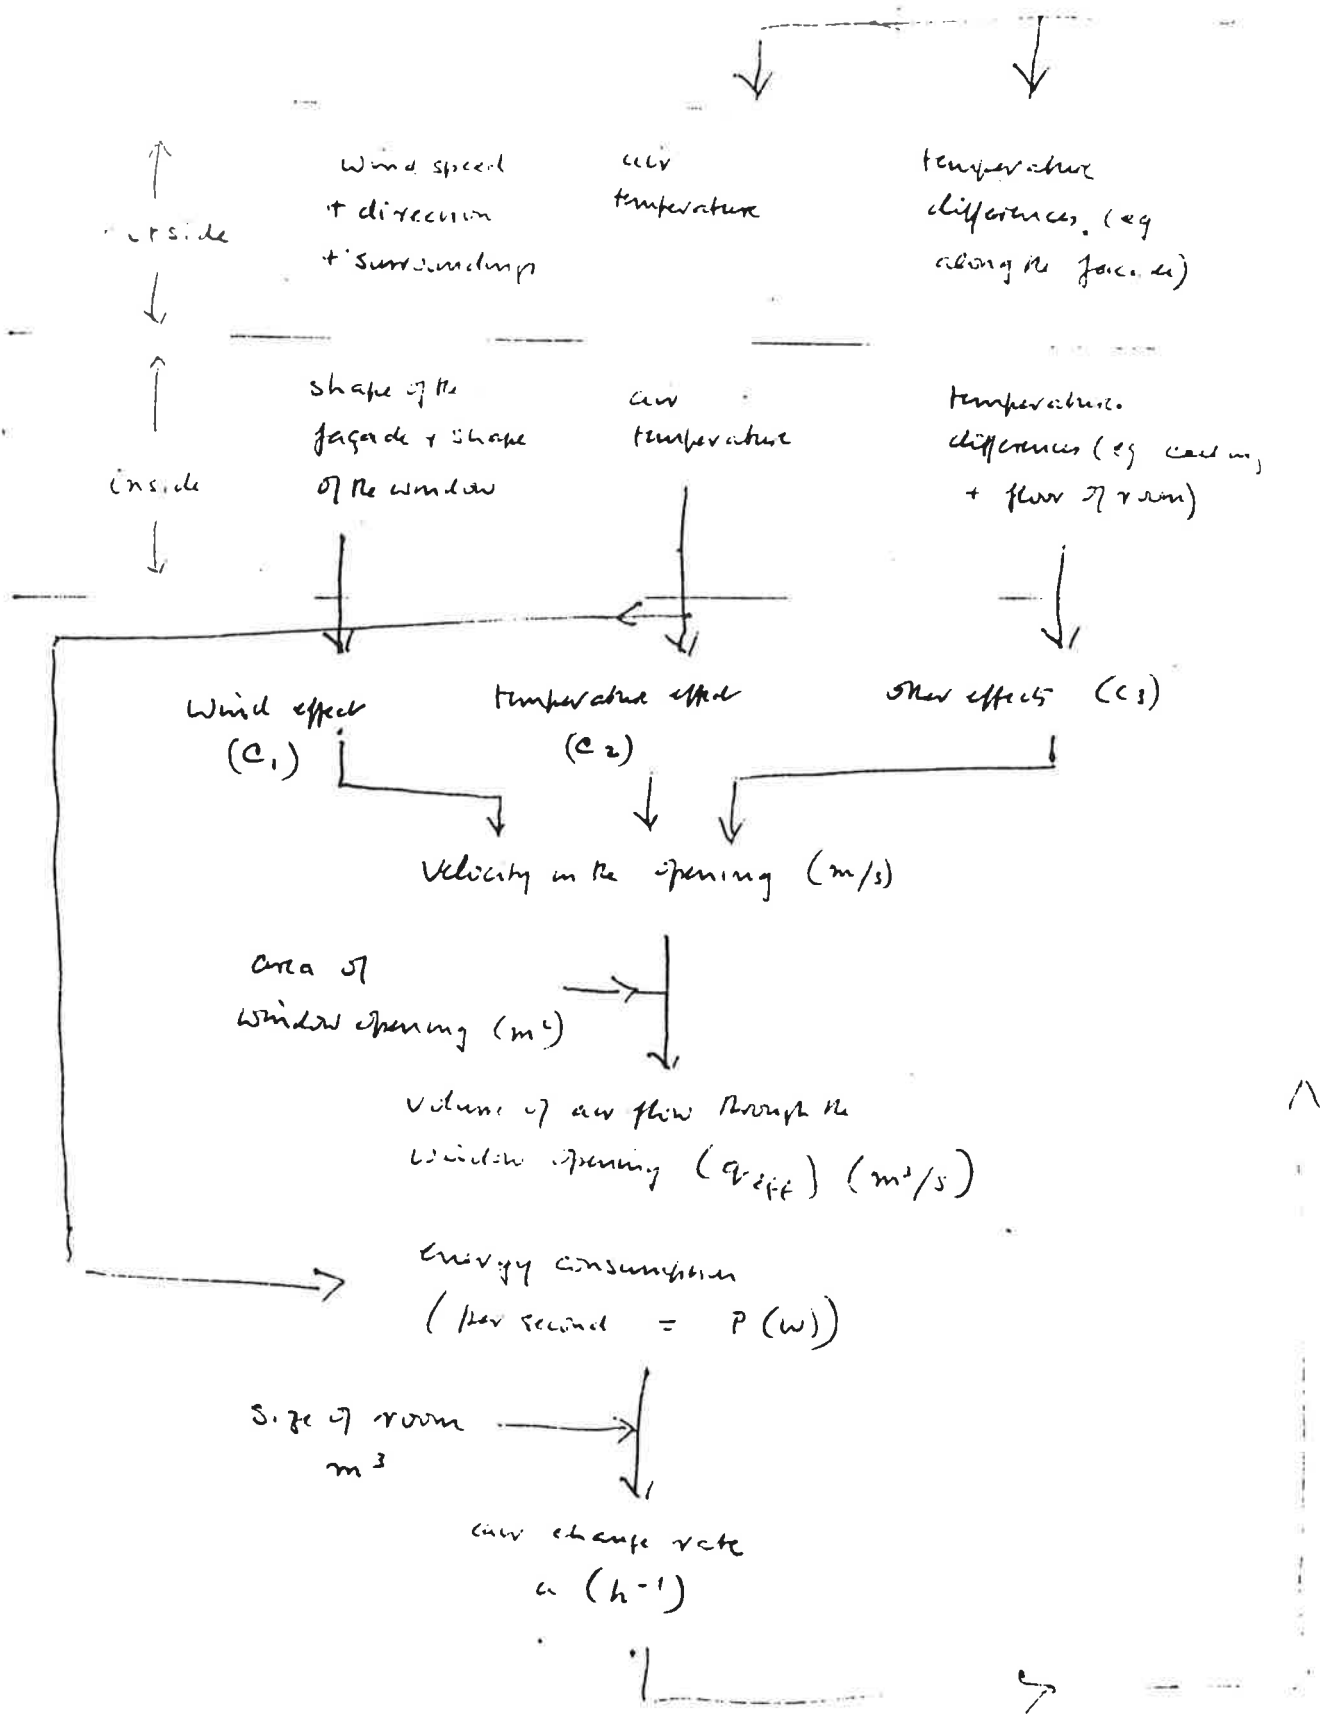 wind speed
+ direction
+ surroundings
air
temperature
temperature
differences. (eg
along the facade)
outside
shape of the
façade + shape
of the window
air
temperature
temperature
differences (eg ceiling
+ floor of room)
inside
Wind effect
(C1)
temperature effect
(C2)
other effects (C3)
Velocity in the opening (m/s)
area of
window opening (m²)
volume of air flow through the
window opening (qeff) (m³/s)
energy consumption
(per second = P (W))
Size of room
m³
air change rate
a (h-1)